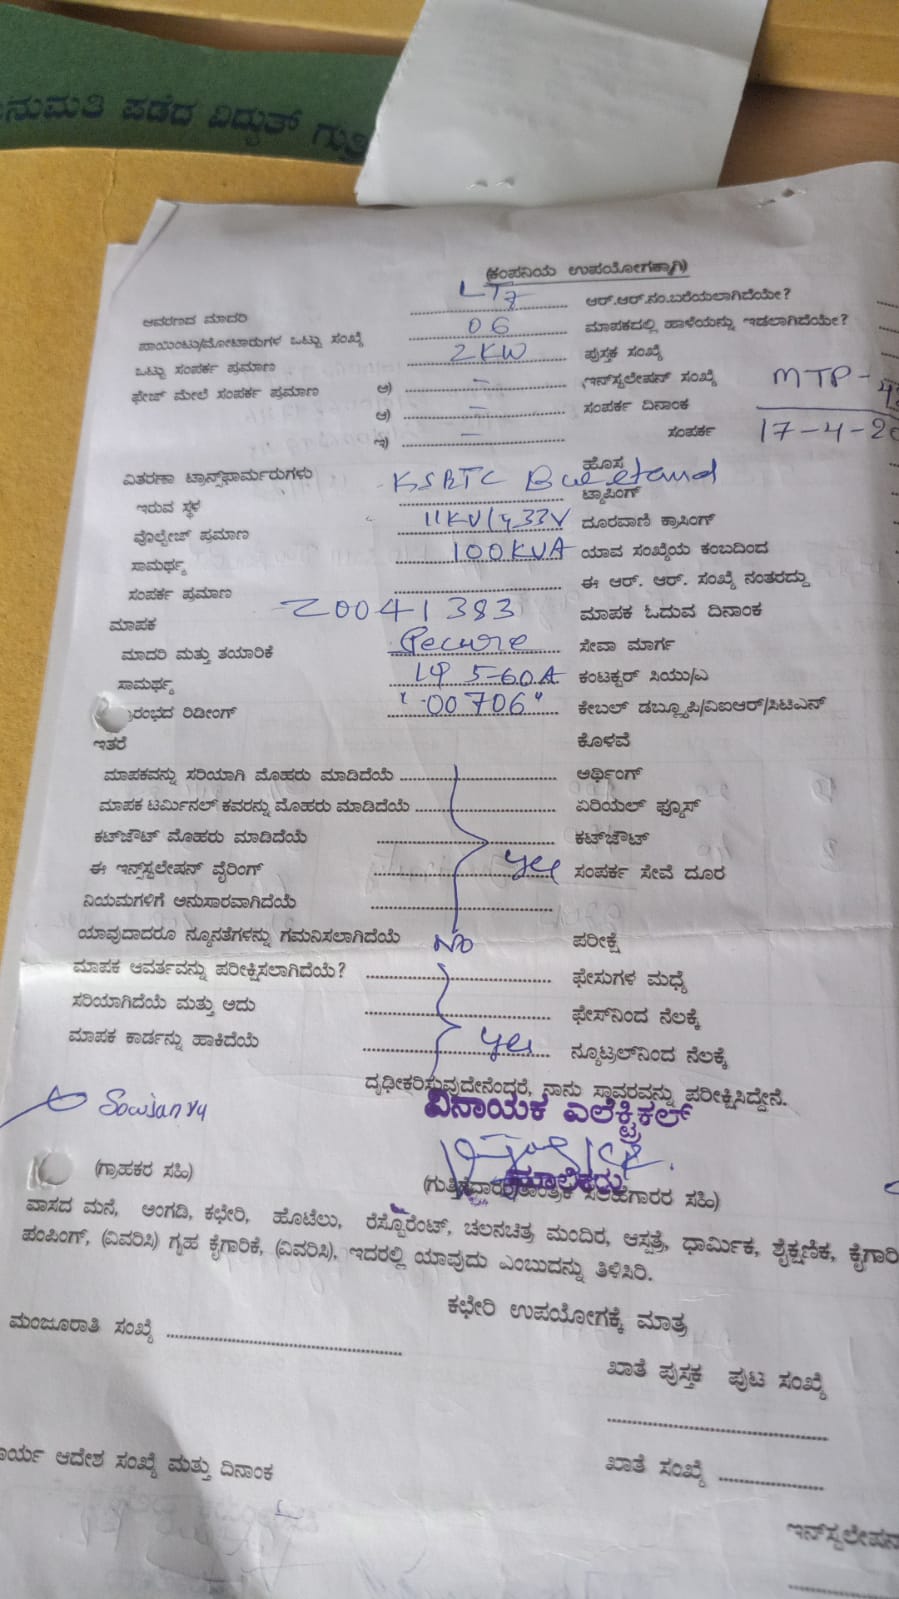 ನುಮತಿ ಪಡೆದ ವಿದ್ಯುತ್ ಗುತ್ತಿ
(ಕಂಪನಿಯ ಉಪಯೋಗಕ್ಕಾಗಿ)
ಆವರಣದ ಮಾದರಿ LT3 ಆರ್.ಆರ್.ನಂ.ಬರೆಯಲಾಗಿದೆಯೇ?
ಪಾಯಿಂಟು/ಮೋಟಾರುಗಳ ಒಟ್ಟು ಸಂಖ್ಯೆ 06 ಮಾಪಕದಲ್ಲಿ ಹಾಳೆಯನ್ನು ಇಡಲಾಗಿದೆಯೇ?
ಒಟ್ಟು ಸಂಪರ್ಕ ಪ್ರಮಾಣ 2KW ಪುಸ್ತಕ ಸಂಖ್ಯೆ
ಫೇಜ್ ಮೇಲೆ ಸಂಪರ್ಕ ಪ್ರಮಾಣ ಅ) - ಇನ್‌ಸ್ಟಲೇಷನ್ ಸಂಖ್ಯೆ MTP-
ಆ) - ಸಂಪರ್ಕ ದಿನಾಂಕ
ಇ) - ಸಂಪರ್ಕ 17-4-20
ಹೊಸ
ವಿತರಣಾ ಟ್ರಾನ್ಸ್‌ಫಾರ್ಮರುಗಳು KSRTC
ಇರುವ ಸ್ಥಳ ಟ್ಯಾಪಿಂಗ್
ವೋಲ್ಟೇಜ್ ಪ್ರಮಾಣ 11KV/433V ದೂರವಾಣಿ ಕ್ರಾಸಿಂಗ್
ಸಾಮರ್ಥ್ಯ 100KVA ಯಾವ ಸಂಖ್ಯೆಯ ಕಂಬದಿಂದ
ಸಂಪರ್ಕ ಪ್ರಮಾಣ ಈ ಆರ್. ಆರ್. ಸಂಖ್ಯೆ ನಂತರದ್ದು
ಮಾಪಕ Z0041383 ಮಾಪಕ ಓದುವ ದಿನಾಂಕ
ಮಾದರಿ ಮತ್ತು ತಯಾರಿಕೆ Secure ಸೇವಾ ಮಾರ್ಗ
ಸಾಮರ್ಥ್ಯ 1φ 5-60A ಕಂಟಕ್ಟರ್ ಸಿಯು/ಎ
ರಂಭದ ರಿಡೀಂಗ್ "00706" ಕೇಬಲ್ ಡಬ್ಲ್ಯೂಪಿ/ವಿಐಆರ್/ಸಿಟಿಎನ್
ಇತರೆ ಕೊಳವೆ
ಮಾಪಕವನ್ನು ಸರಿಯಾಗಿ ಮೊಹರು ಮಾಡಿದೆಯೆ ಅರ್ಥಿಂಗ್
ಮಾಪಕ ಟರ್ಮಿನಲ್ ಕವರನ್ನು ಮೊಹರು ಮಾಡಿದೆಯೆ ಏರಿಯಲ್ ಫ್ಯೂಸ್
ಕಟ್‌ಔಟ್ ಮೊಹರು ಮಾಡಿದೆಯೆ ಕಟ್‌ಔಟ್
ಈ ಇನ್ಸ್‌ಸ್ಟಲೇಷನ್ ವೈರಿಂಗ್ yes ಸಂಪರ್ಕ ಸೇವೆ ದೂರ
ನಿಯಮಗಳಿಗೆ ಅನುಸಾರವಾಗಿದೆಯೆ
ಯಾವುದಾದರೂ ನ್ಯೂನತೆಗಳನ್ನು ಗಮನಿಸಲಾಗಿದೆಯೆ No ಪರೀಕ್ಷೆ
ಮಾಪಕ ಆವರ್ತವನ್ನು ಪರೀಕ್ಷಿಸಲಾಗಿದೆಯೆ? ಫೇಸುಗಳ ಮಧ್ಯೆ
ಸರಿಯಾಗಿದೆಯೆ ಮತ್ತು ಅದು ಫೇಸ್‌ನಿಂದ ನೆಲಕ್ಕೆ
ಮಾಪಕ ಕಾರ್ಡನ್ನು ಹಾಕಿದೆಯೆ yes ನ್ಯೂಟ್ರಲ್‌ನಿಂದ ನೆಲಕ್ಕೆ
ದೃಢೀಕರಿಸುವುದೇನೆಂದರೆ, ನಾನು ಸ್ಥಾವರವನ್ನು ಪರೀಕ್ಷಿಸಿದ್ದೇನೆ.
Sowjanya ವಿನಾಯಕ ಎಲೆಕ್ಟ್ರಿಕಲ್
ಮಾಲಿಕರು
(ಗ್ರಾಹಕರ ಸಹಿ) ಸಹಿ)
ವಾಸದ ಮನೆ, ಅಂಗಡಿ, ಕಛೇರಿ, ಹೊಟೆಲು, ರೆಸ್ಟೊರೆಂಟ್, ಚಲನಚಿತ್ರ ಮಂದಿರ, ಆಸ್ಪತ್ರೆ, ಧಾರ್ಮಿಕ, ಶೈಕ್ಷಣಿಕ, ಕೈಗಾರಿ
ಪಂಪಿಂಗ್, (ವಿವರಿಸಿ) ಗೃಹ ಕೈಗಾರಿಕೆ, (ವಿವರಿಸಿ), ಇದರಲ್ಲಿ ಯಾವುದು ಎಂಬುದನ್ನು ತಿಳಿಸಿರಿ.
ಕಛೇರಿ ಉಪಯೋಗಕ್ಕೆ ಮಾತ್ರ
ಮಂಜೂರಾತಿ ಸಂಖ್ಯೆ
ಖಾತೆ ಪುಸ್ತಕ ಪುಟ ಸಂಖ್ಯೆ
ಾರ್ಯ ಆದೇಶ ಸಂಖ್ಯೆ ಮತ್ತು ದಿನಾಂಕ ಖಾತೆ ಸಂಖ್ಯೆ
ಇನ್‌ಸ್ಟಲೇಷನ